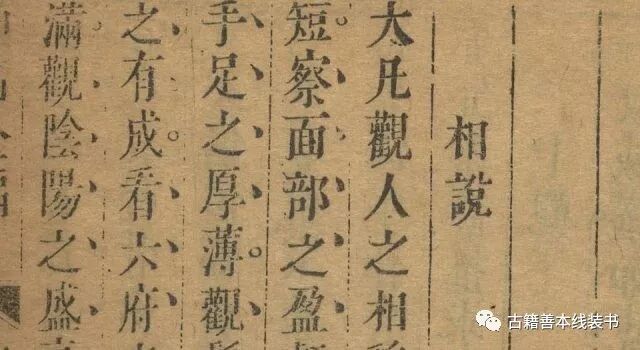 相說
大凡觀人之相
短察面部之盈
手足之厚薄觀
之有成看六府
滿觀陰陽之盛
古籍善本线装书